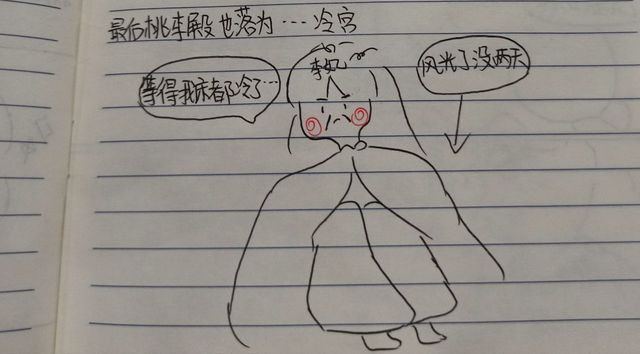 最后桃李殿也落为…冷宫
李妃
等得我床都冷了…
风光了没两天